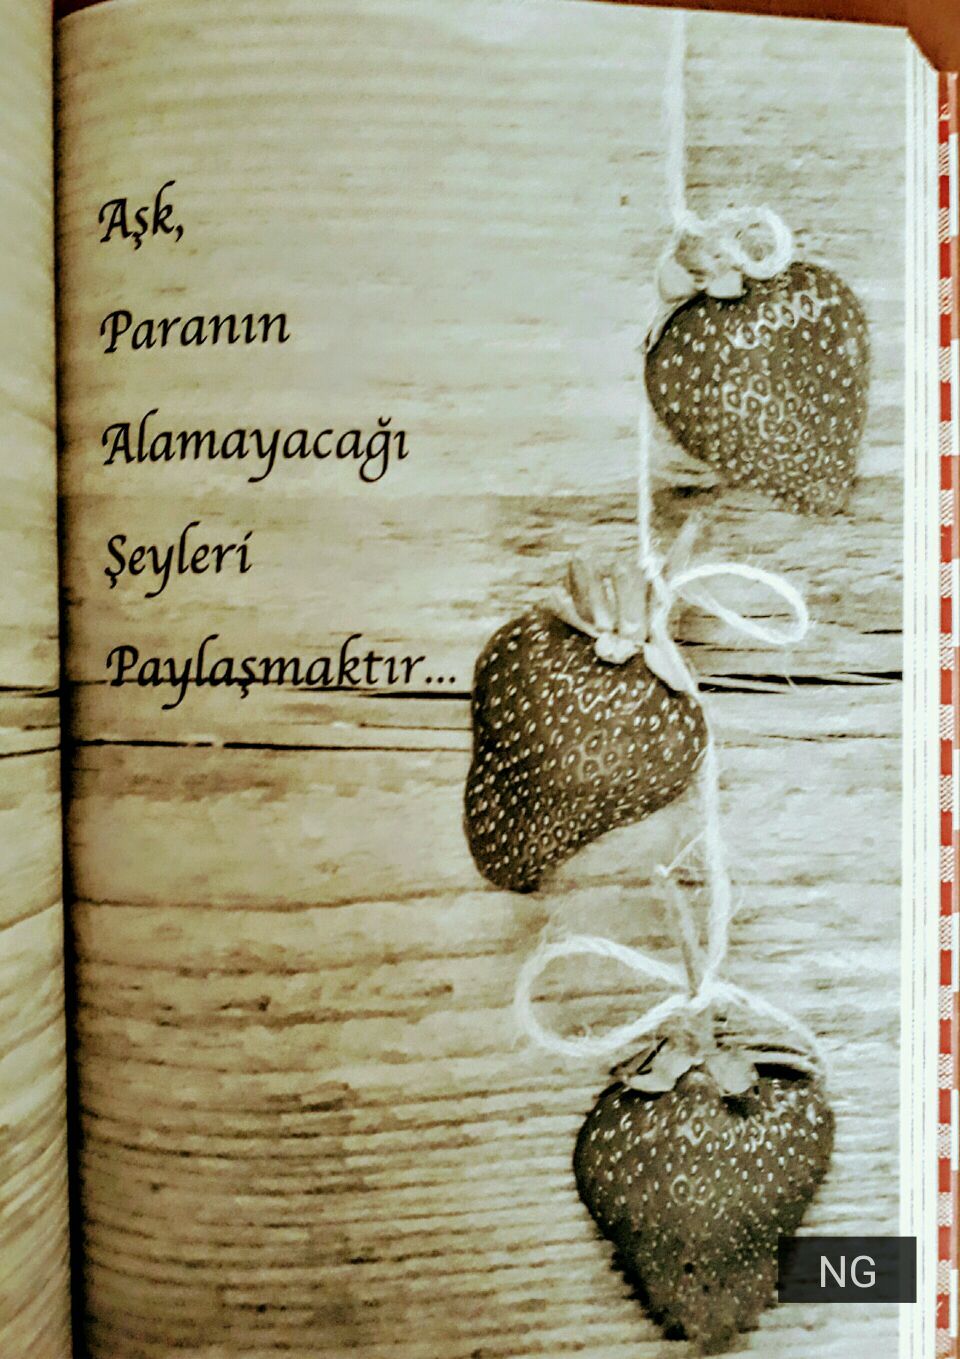 Aşk,
Paranın
Alamayacağı
Şeyleri
Paylaşmaktır...
NG